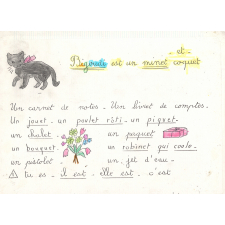 et
Bigoudi est un minet coquet
Un carnet de notes - Un livret de comptes.
Un jouet - un poulet rôti - un piquet -
un chalet - un paquet
un bouquet - un robinet qui coule -
un pistolet - un jet d'eau -
tu es - il est - elle est - c'est